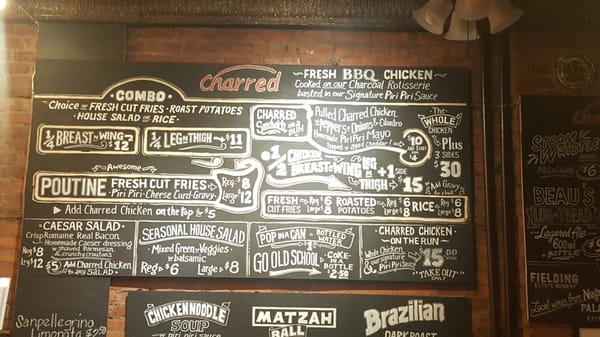 charred
~ FRESH BBQ CHICKEN ~
Cooked on our Charcoal Rotisserie
basted in our Signature Piri Piri Sauce
COMBO
Choice of FRESH CUT FRIES · ROAST POTATOES
· HOUSE SALAD or RICE ·
1/4 BREAST & WING $12
1/4 LEG & THIGH $11
CHARRED
Sandwich
on a BUN
Pulled Charred Chicken
PEPPERS Onions & Cilantro
Homemade Piri Piri Mayo
10
The
WHOLE
CHICKEN
Plus
3 SIDES
$30
1/2 CHICKEN
BREAST & WING
LEG &
THIGH
+1 SIDE
$15
Awesome
POUTINE
FRESH CUT FRIES
Piri Piri · Cheese Curd · Gravy
Reg $8
Large $12
Add Charred Chicken on the top for $5
FRESH CUT FRIES Reg $6 Large $8
ROASTED POTATOES Reg $6 Large $8
RICE Reg $6 Large $8
CAESAR SALAD
Crisp Romaine Real Bacon
Homemade Caesar dressing
w shaved Parmesan
& crunchy croutons
Reg $8
Lg $12
$5 Add Charred Chicken
to any SALAD
SEASONAL HOUSE SALAD
Mixed Green · Veggies
w balsamic
Reg $6 Large $8
POP IN A CAN
BOTTLED WATER
GO OLD SCHOOL
COKE
IN A
BOTTLE
2.50
CHARRED CHICKEN
ON THE RUN
Whole Chicken
& our signature
Piri Piri Sauce
15.00
"TAKE OUT"
ONLY
Sanpellegrino
Limonata $2.50
CHICKEN NOODLE
SOUP
MATZAH
BALL
Brazilian
DARK ROAST
STEAM
WHISTLE
$6
BEAU'S
LUG·TREAD
Lagered Ale
600 ml
FIELDING
ESTATE WINERY
Local wines from